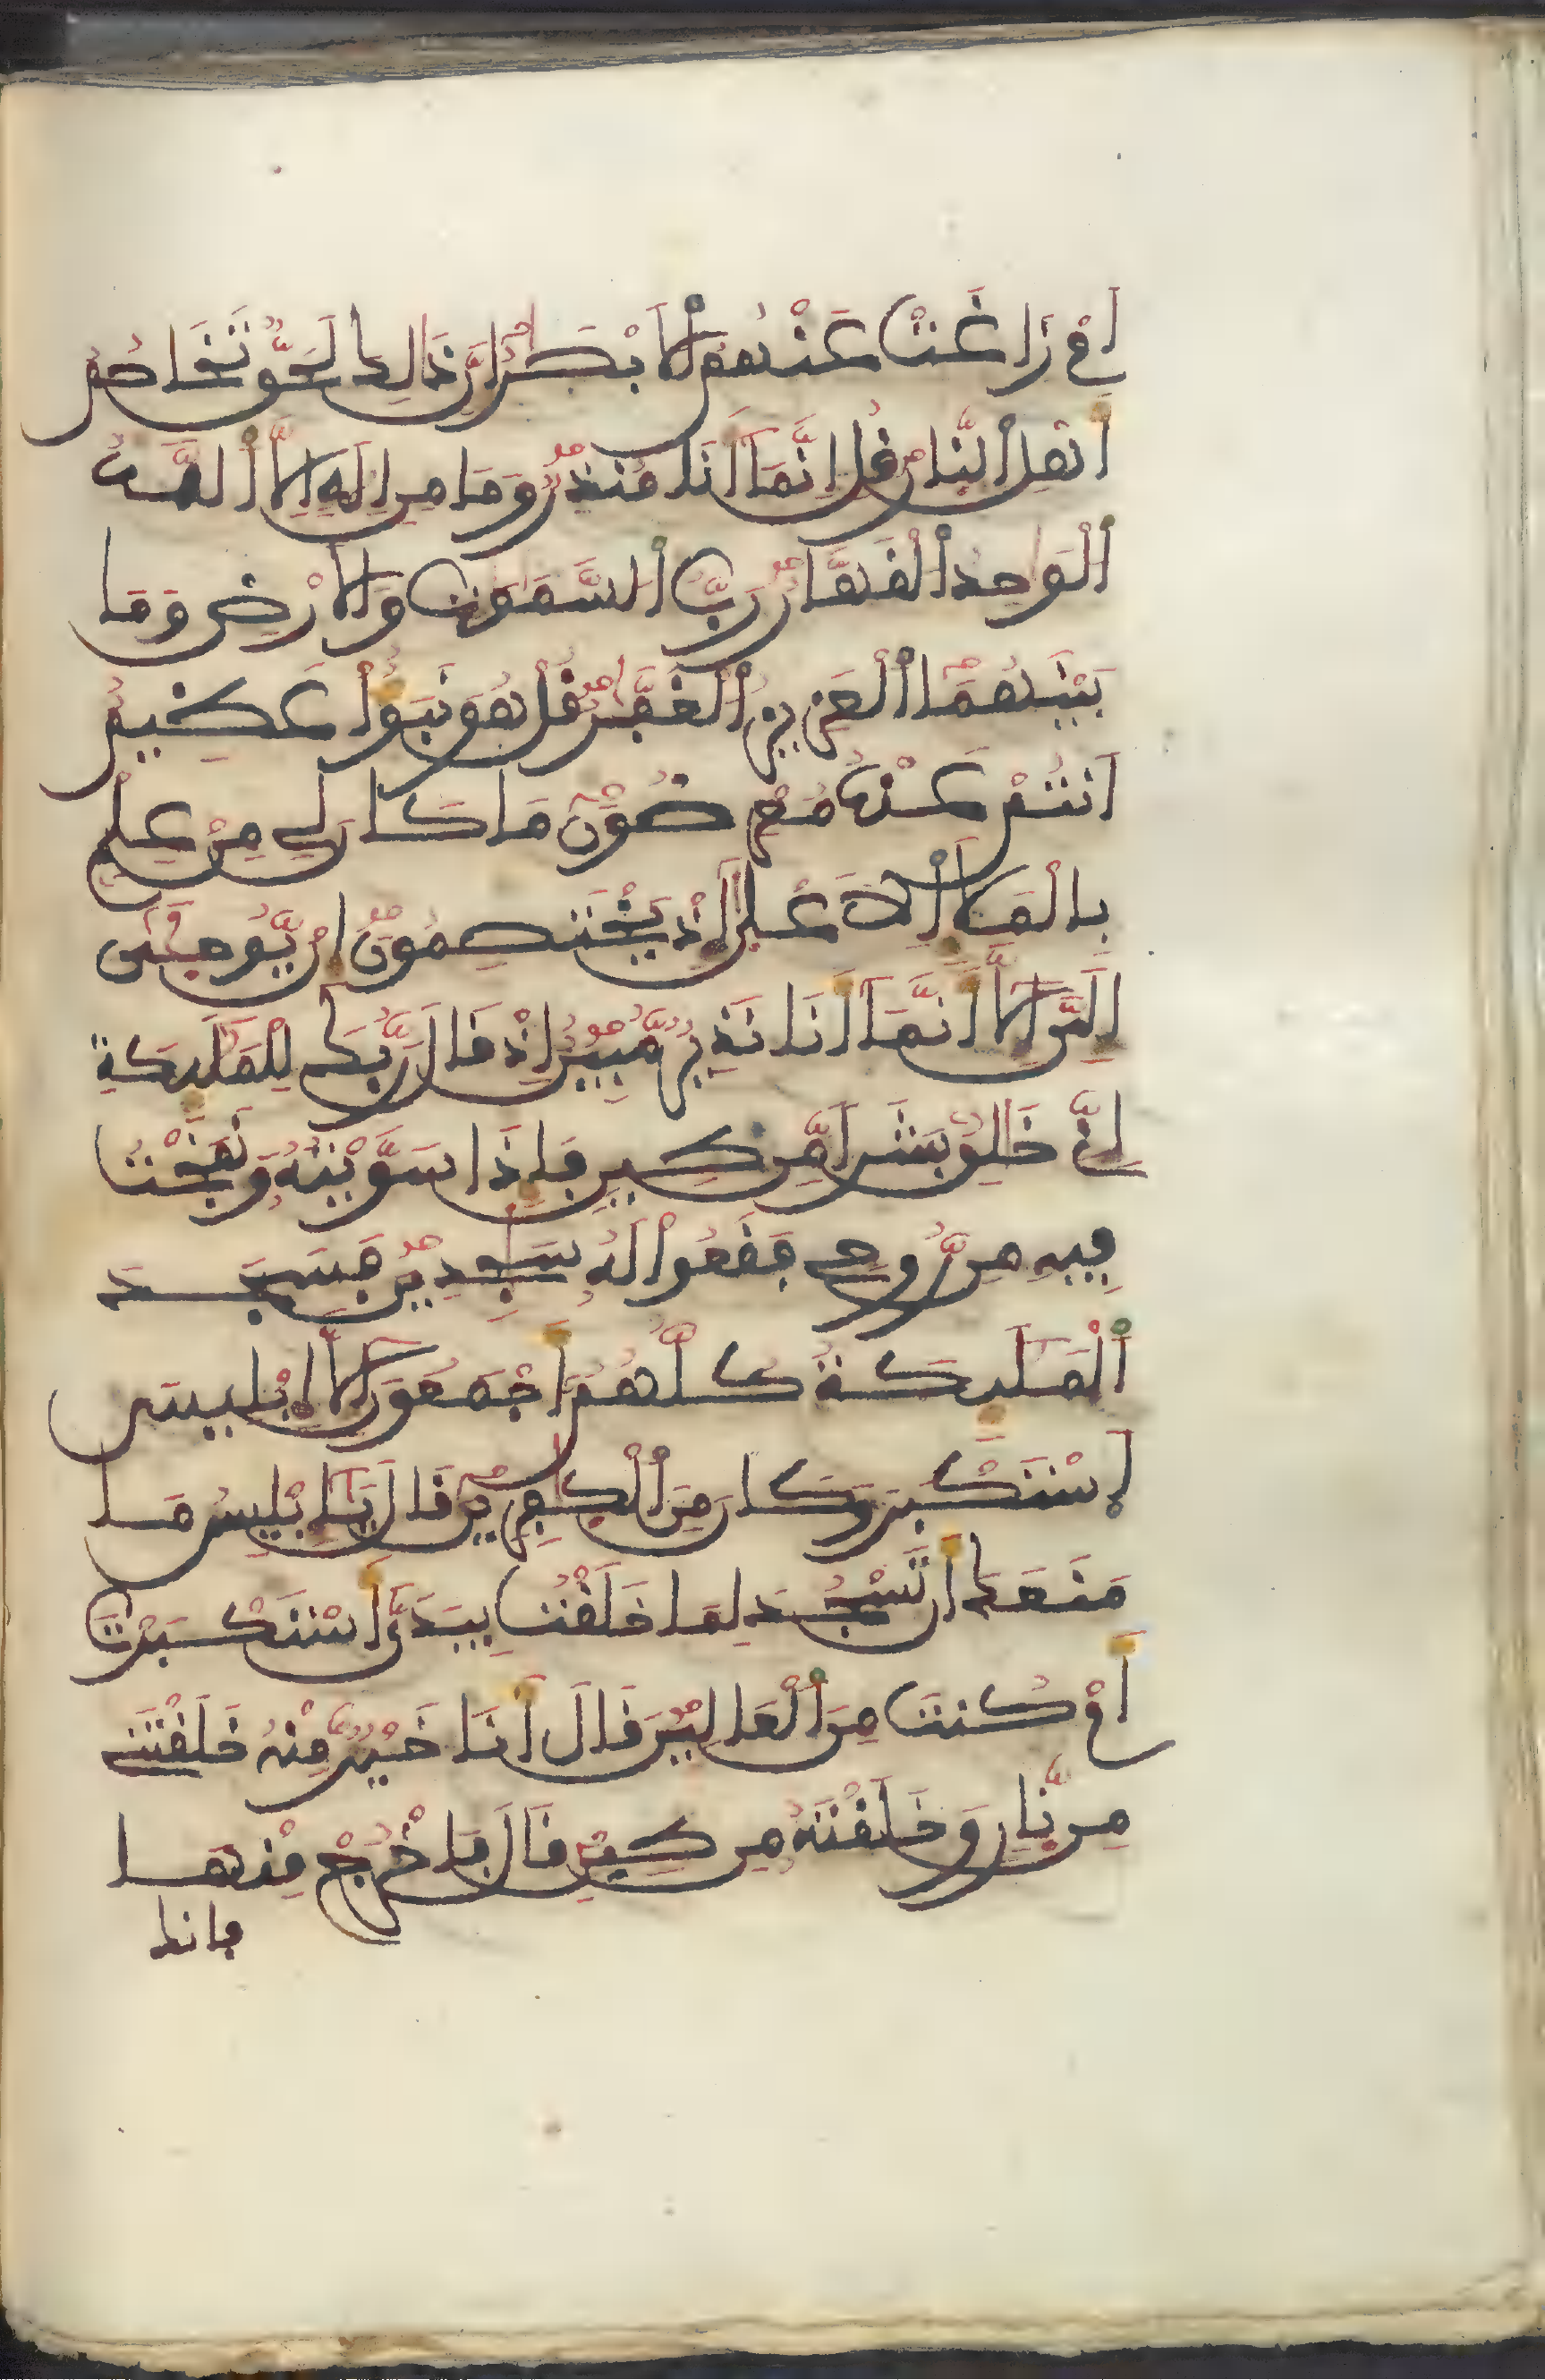 أَمْ زَاغَتْ عَنْهُمُ الْأَبْصَٰرُ إِنَّ ذَٰلِكَ لَحَقٌّ تَخَاصُمُ
أَهْلِ النَّارِ قُلْ إِنَّمَا أَنَا مُنذِرٌ وَمَا مِنِ الَٰهٍ إِلَّا اللَّهُ
الْوَٰحِدُ الْقَهَّارُ رَبُّ السَّمَٰوَٰتِ وَالْأَرْضِ وَمَا
بَيْنَهُمَا الْعَزِيزُ الْغَفَّٰرُ قُلْ هُوَ نَبَؤٌا عَظِيمٌ
أَنتُمْ عَنْهُ مُعْرِضُونَ مَا كَانَ لِي مِنْ عِلْمٍ
بِالْمَلَإِ الْأَعْلَىٰ إِذْ يَخْتَصِمُونَ إِنْ يُّوحَىٰ
إِلَيَّ إِلَّا أَنَّمَا أَنَا نَذِيرٌ مُّبِينٌ إِذْ قَالَ رَبُّكَ لِلْمَلَٰئِكَةِ
إِنِّي خَٰلِقٌ بَشَرًا مِّن طِينٍ فَإِذَا سَوَّيْتُهُ وَنَفَخْتُ
فِيهِ مِن رُّوحِي فَقَعُوا لَهُ سَٰجِدِينَ فَسَجَدَ
الْمَلَٰئِكَةُ كُلُّهُمُ أَجْمَعُونَ إِلَّا إِبْلِيسَ
اِسْتَكْبَرَ وَكَانَ مِنَ الْكَٰفِرِينَ قَالَ يَٰإِبْلِيسُ مَا
مَنَعَكَ أَن تَسْجُدَ لِمَا خَلَقْتُ بِيَدَيَّ أَسْتَكْبَرْتَ
أَمْ كُنتَ مِنَ الْعَالِينَ قَالَ أَنَا خَيْرٌ مِّنْهُ خَلَقْتَنِي
مِن نَّارٍ وَخَلَقْتَهُ مِن طِينٍ قَالَ فَاخْرُجْ مِنْهَا
فانك